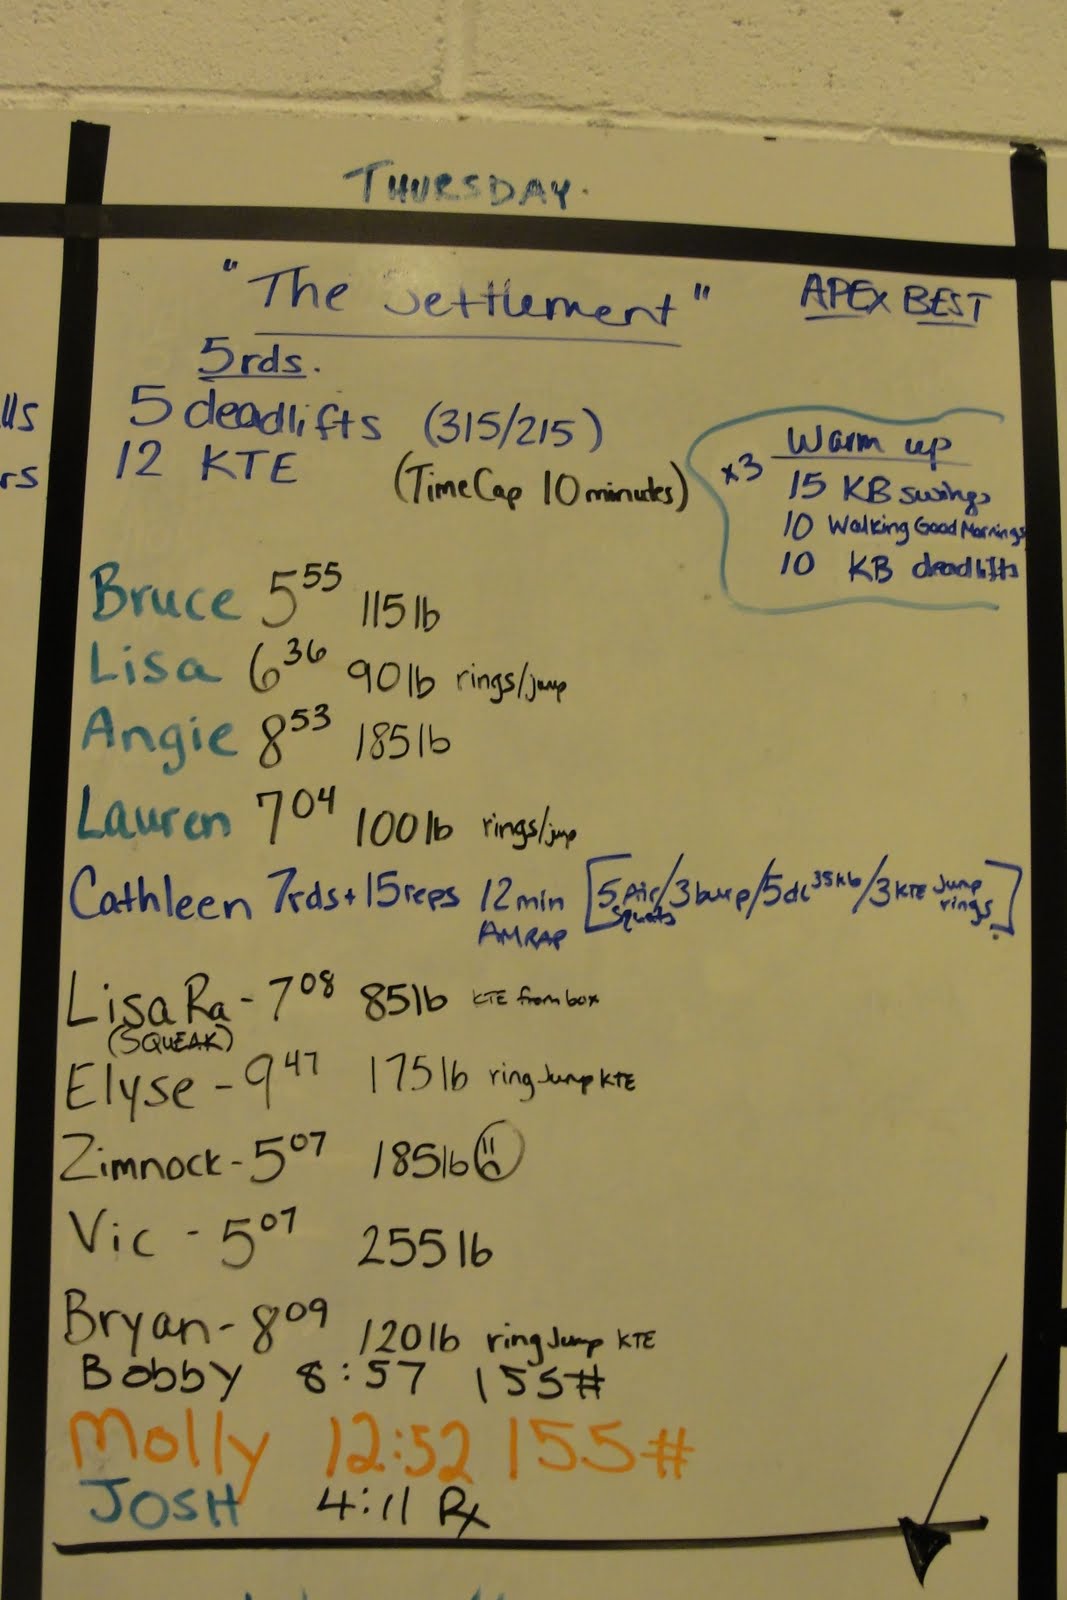 THURSDAY.
"The Settlement"
APEX BEST
5rds.
5 deadlifts (315/215)
12 KTE
(Time Cap 10 minutes)
Warm up
x3
15 KB swings
10 Walking Good Mornings
10 KB deadlifts
lls
rs
Bruce 5 55 115lb
Lisa 6 36 90lb rings/jump
Angie 8 53 185lb
Lauren 7 04 100lb rings/jump
Cathleen 7rds + 15 reps 12 min AMRAP [5 Air Squats/3 burp/5 dl 35kb/3 KTE Jump rings]
Lisa Ra - 7 08 85lb KTE from box
(SQUEAK)
Elyse - 9 47 175lb ring Jump KTE
Zimnock - 5 07 185lb
Vic - 5 07 255lb
Bryan - 8 09 120lb ring Jump KTE
Bobby 8:57 155#
Molly 12:52 155#
JOSH 4:11 Rx